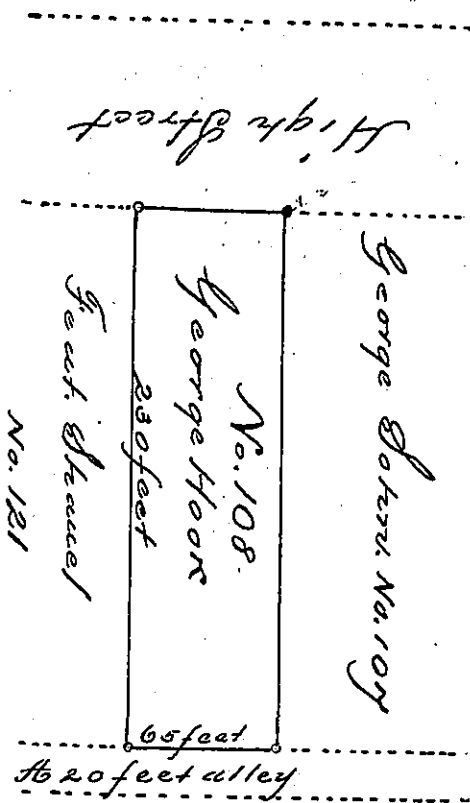 High Street
George Bohm. No. 107
No. 108.
George Hook
230 feet
No. 121
65 feet
A 20 feet alley